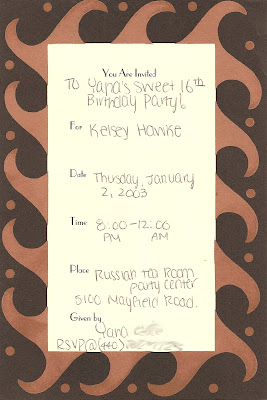 You Are Invited
To Yana's Sweet 16th
Birthday Party!
For Kelsey Hawke
Date Thusday, January
2, 2003
Time 8:00-12:00
PM AM
Place Russian Tea Room
party center
5100 Mayfield Road.
Given by
Yana
RSVP@(440)